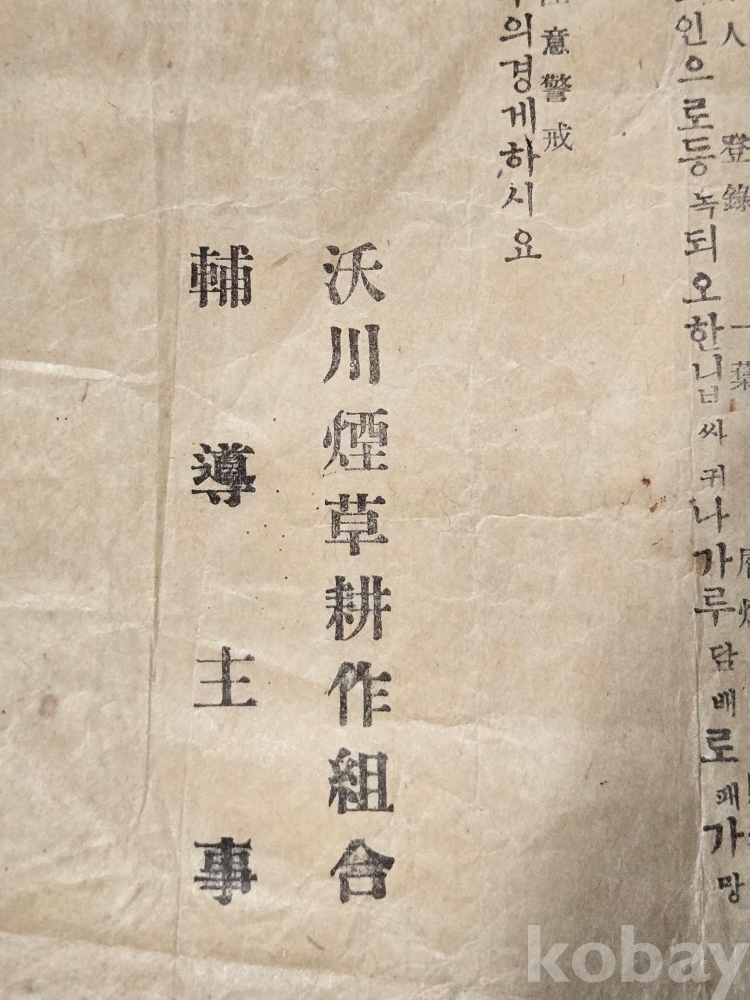 人 登錄 一葉
인으로등녹되오한닙싸귀나가루담배로패가망
意警戒
의경게하시요
沃川煙草耕作組合
輔導主事
kobay